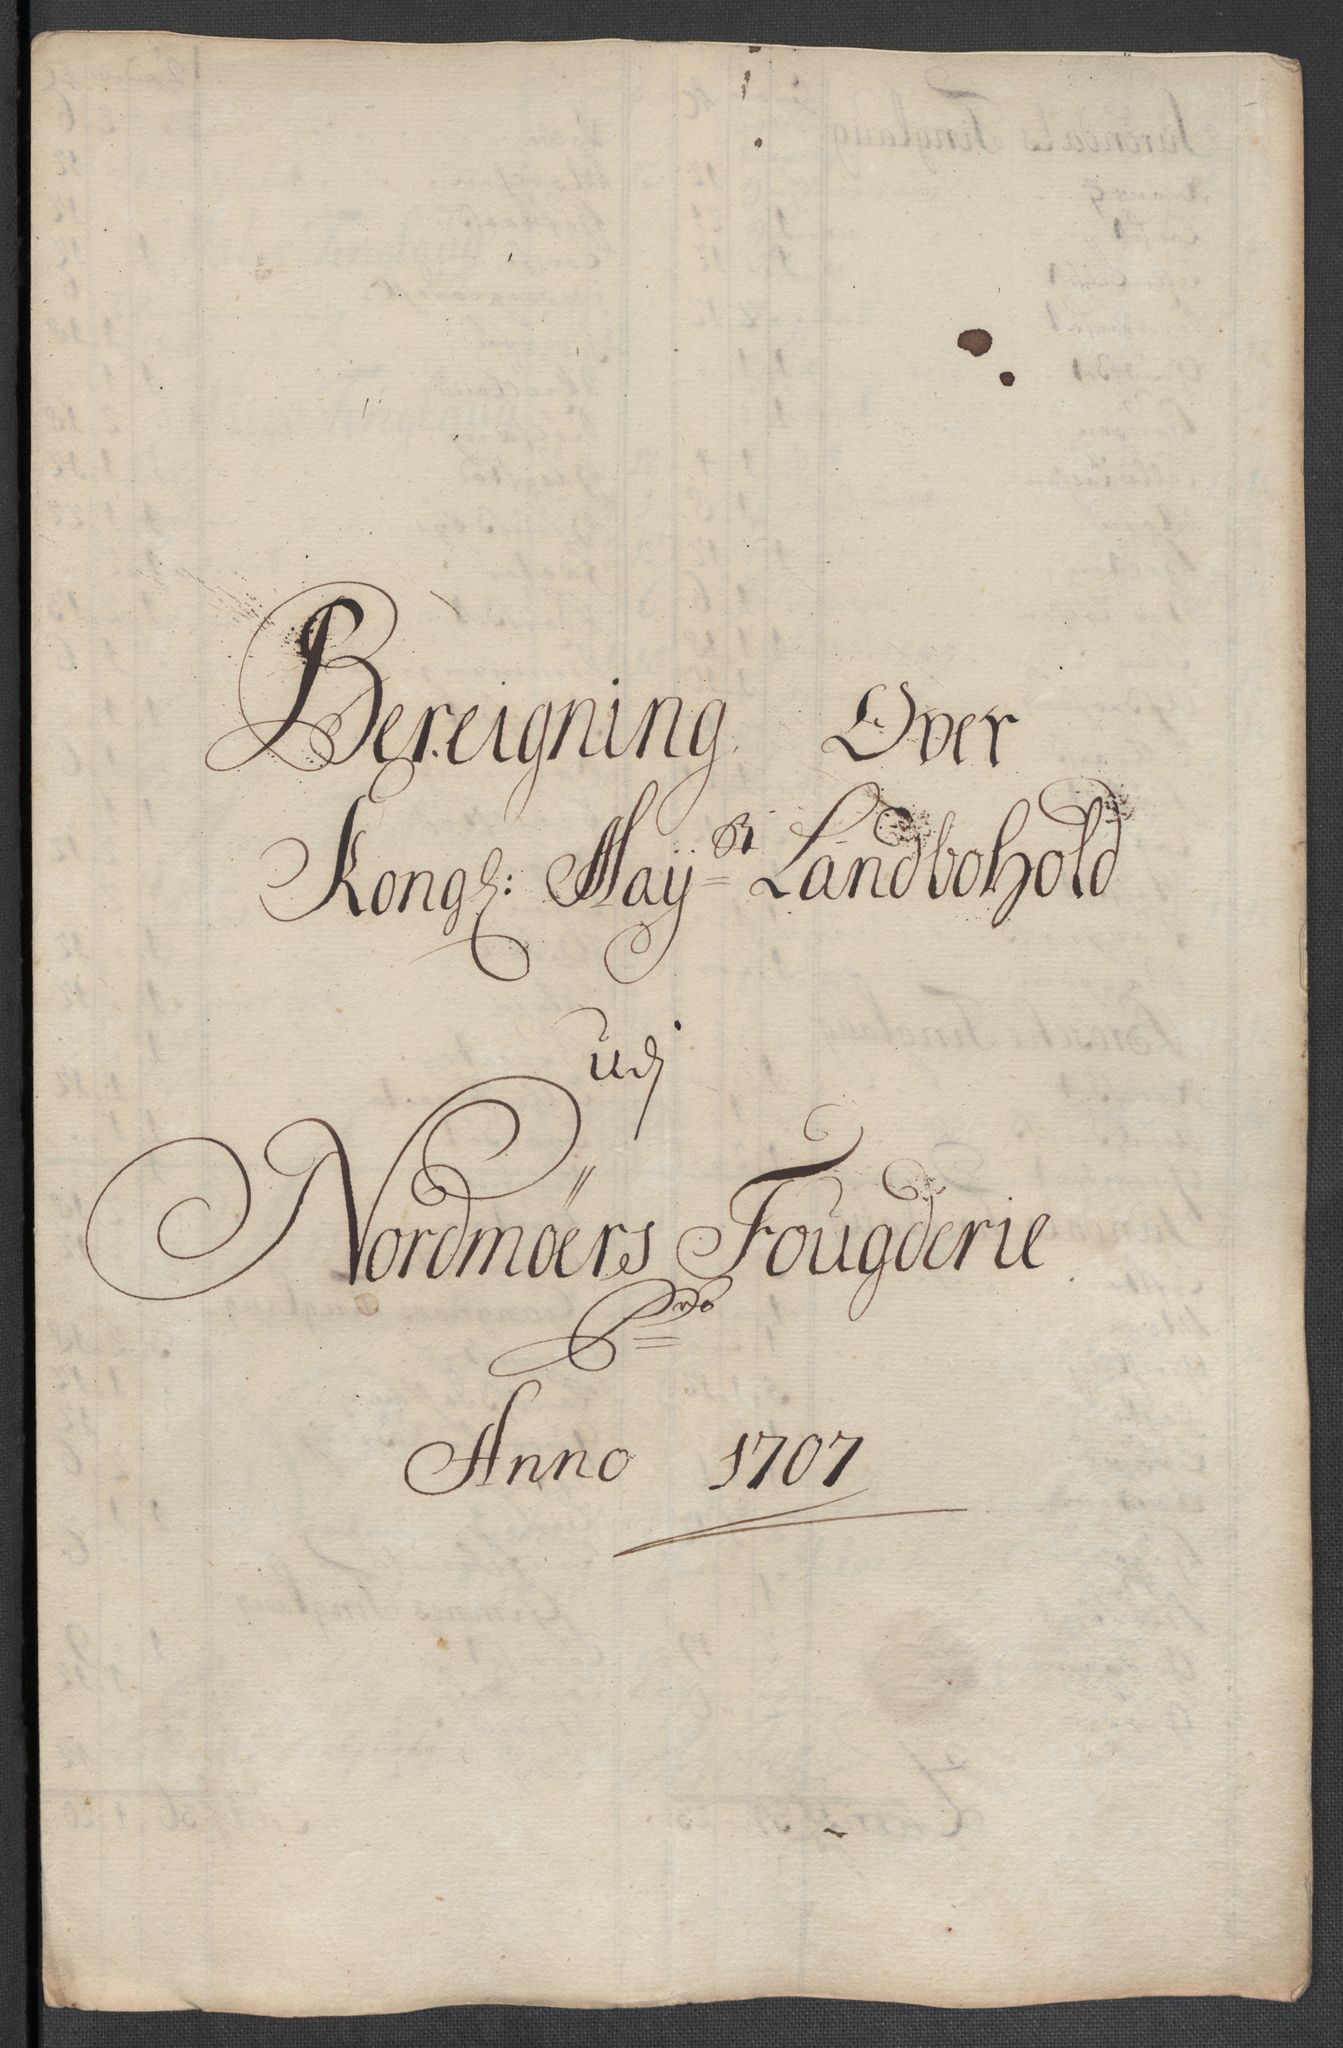 Bereigning Over
Kongl: Mayst Landbohold
udj
Nordmöers Fougderie
Pro
Anno 1707